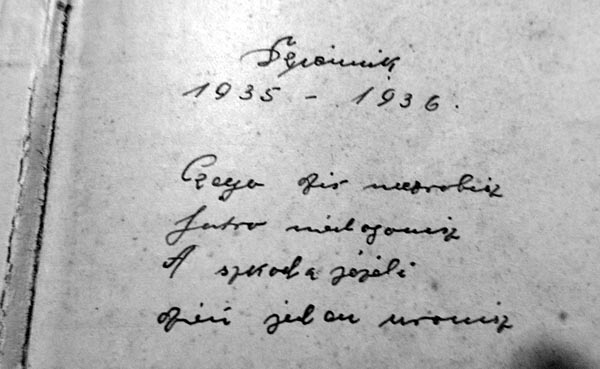 Dziennik
1935 - 1936.
Czego dziś niezrobisz
Jutro niedogonisz
A szkodą jeżeli
dzień jeden uronisz